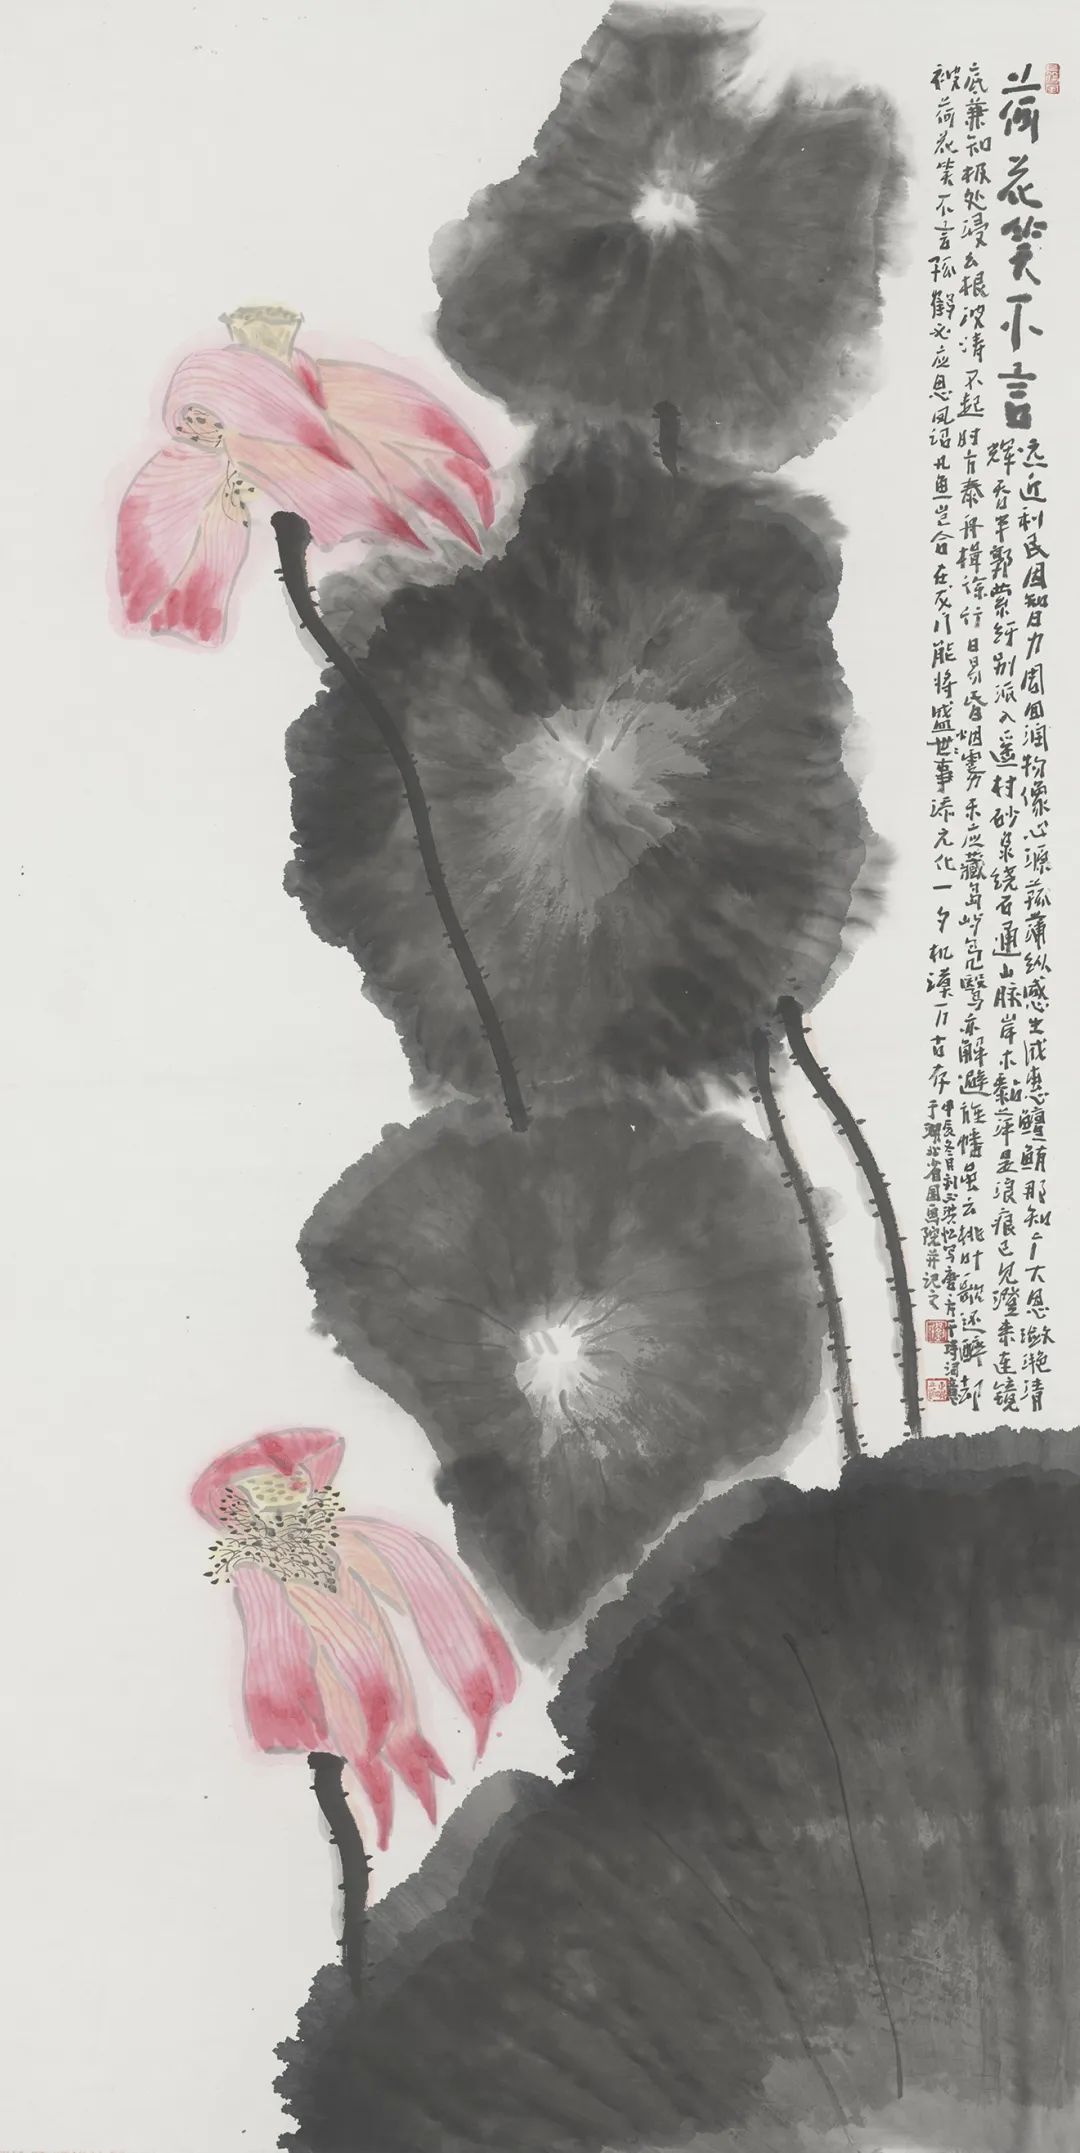 荷花笑不言
远近利民因智力周回润物像心源菰蒲纵感生成惠鳣鲔那知广大恩潋滟清
辉吞半郭萦纡别派入遥村砂泉绕石通山脉岸木黏萍是浪痕已见澄来连镜
底兼知极处浸云根波涛不起时方泰舟楫徐行日易昏烟雾未应藏岛屿凫鹥亦解避旌幡虽云桃叶歌还醉却
被荷花笑不言孤鹤必应思凤诏凡鱼岂合在龙门能将盛世事添元化一夕机谟万古存
甲辰冬月忆写唐方干诗词意
于湖北省国画院并记之